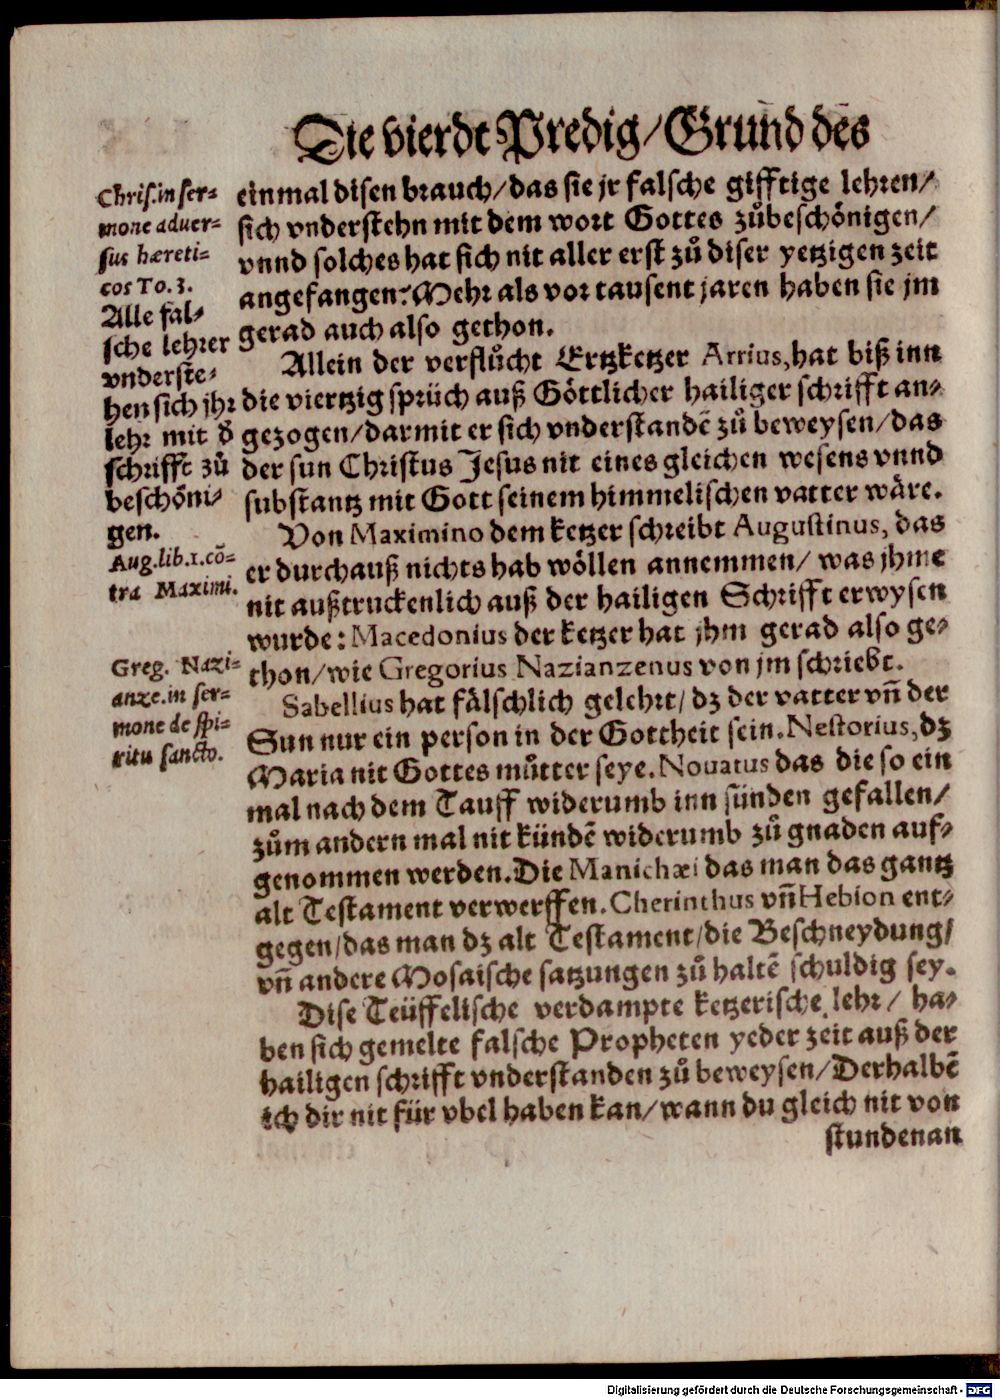 Die vierdt Predig/ Grund des
Chris. in ser-
mone aduer-
sus hæreti-
cos To. 3.
Alle fal-
sche lehrer
vnderste-
hen sich jhr
lehr mit ð
schrifft zů
beschöni-
gen.
Aug. lib. 1. cō-
tra Maximi.
Greg. Nazi-
anze. in ser-
mone de spi-
ritu sancto.
einmal disen brauch/ das sie jr falsche gifftige lehren/
sich vnderstehn mit dem wort Gottes zůbeschönigen/
vnnd solches hat sich nit aller erst zů diser yetzigen zeit
angefangen: Mehr als vor tausent jaren haben sie jm
gerad auch also gethon.
Allein der verflůcht Ertzketzer Arrius, hat biß inn
die viertzig sprüch auß Göttlicher hailiger schrifft an-
gezogen/ darmit er sich vnderstandē zů beweysen/ das
der sun Christus Jesus nit eines gleichen wesens vnnd
substantz mit Gott seinem himmelischen vatter wäre.
Von Maximino dem ketzer schreibt Augustinus, das
er durchauß nichts hab wöllen annemmen/ was jhme
nit außtruckenlich auß der hailigen Schrifft erwysen
wurde: Macedonius der ketzer hat jhm gerad also ge-
thon/ wie Gregorius Nazianzenus von jm schriebt.
Sabellius hat fälschlich gelehrt/ dz der vatter vñ der
Sun nur ein person in der Gottheit sein. Nestorius, dz
Maria nit Gottes můtter seye. Nouatus das die so ein
mal nach dem Tauff widerumb inn sünden gefallen/
zům andern mal nit kündē widerumb zů gnaden auf-
genommen werden. Die Manichæi das man das gantz
alt Testament verwerffen. Cherinthus vñ Hebion ent-
gegen/ das man dz alt Testament/ die Beschneydung/
vñ andere Mosaische satzungen zů haltē schuldig sey.
Dise Teüffelische verdampte ketzerische lehr/ ha-
ben sich gemelte falsche Propheten yeder zeit auß der
hailigen schrifft vnderstanden zů beweysen/ Derhalbē
ich dir nit für vbel haben kan/ wann du gleich nit von
stundenan
Digitalisierung gefördert durch die Deutsche Forschungsgemeinschaft - DFG